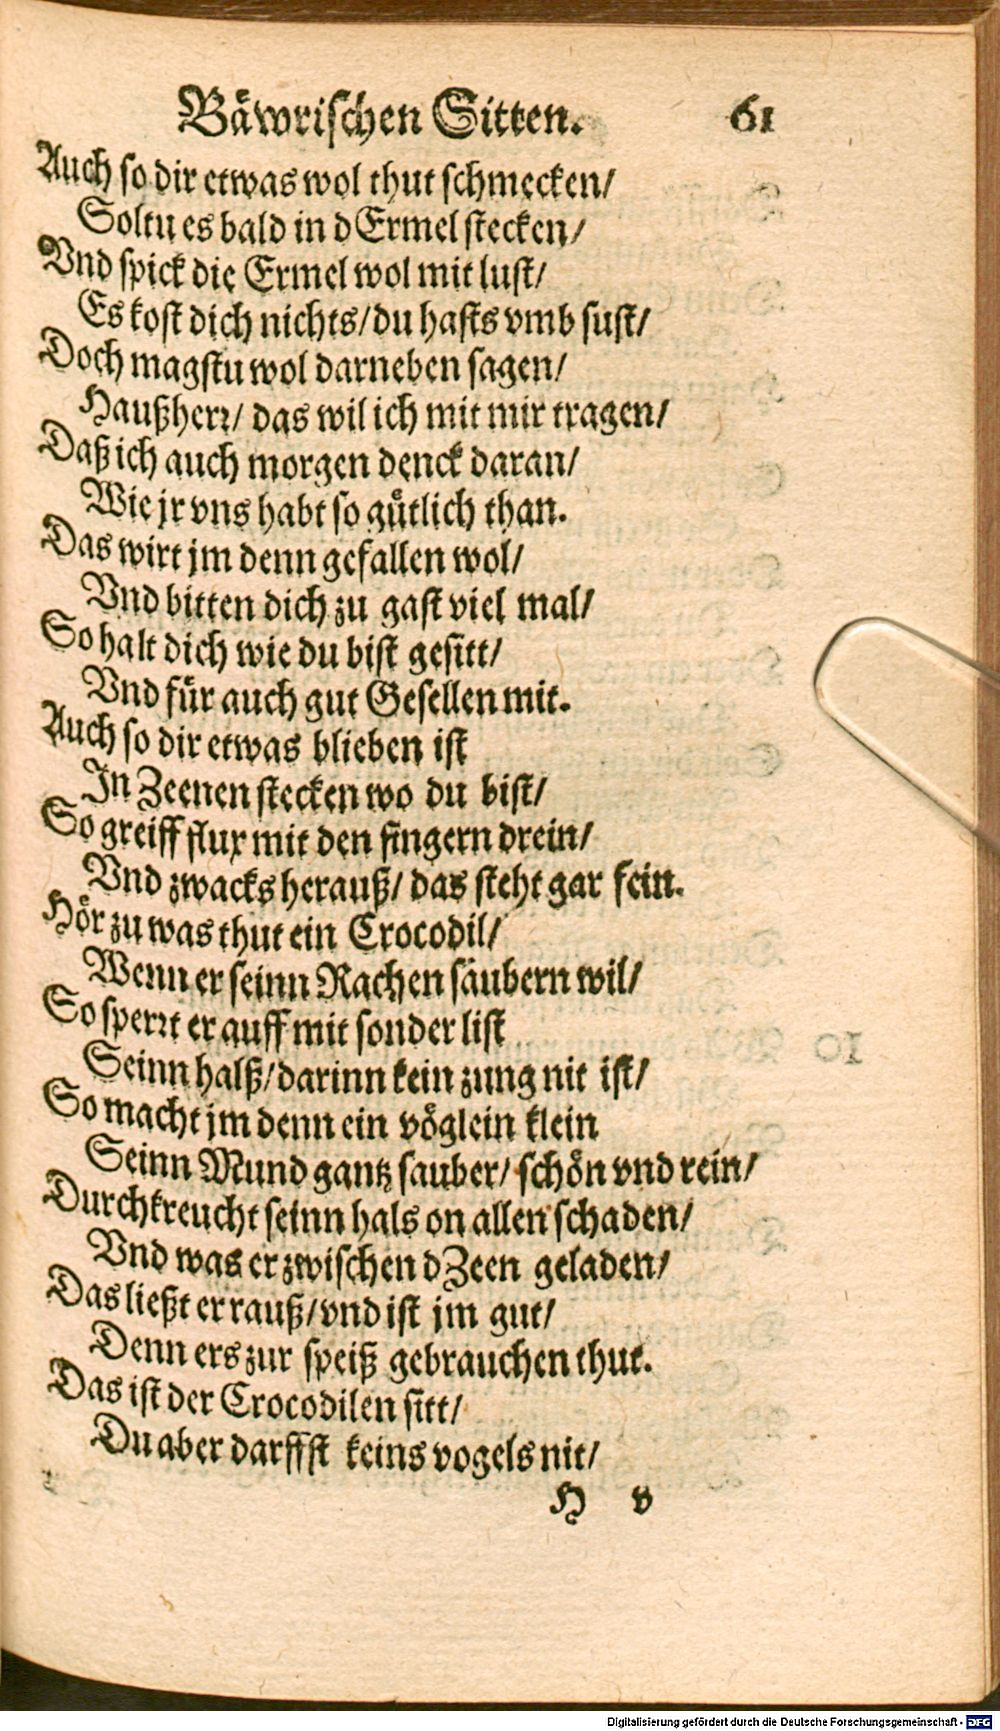 Bäwrischen Sitten. 61
Auch so dir etwas wol thut schmecken/
Soltu es bald in d Ermel stecken/
Vnd spick die Ermel wol mit lust/
Es kost dich nichts/ du hasts vmb sust/
Doch magstu wol darneben sagen/
Haußherr/ das wil ich mit mir tragen/
Daß ich auch morgen denck daran/
Wie jr vns habt so gütlich than.
Das wirt jm denn gefallen wol/
Vnd bitten dich zu gast viel mal/
So halt dich wie du bist gesitt/
Vnd für auch gut Gesellen mit.
Auch so dir etwas blieben ist
In Zeenen stecken wo du bist/
So greiff flux mit den fingern drein/
Vnd zwacks herauß/ das steht gar fein.
Hör zu was thut ein Crocodil/
Wenn er seinn Rachen säubern wil/
So sperrt er auff mit sonder list
Seinn halß/ darinn kein zung nit ist/
So macht jm denn ein vöglein klein
Seinn Mund gantz sauber/ schön vnd rein/
Durchkreucht seinn hals on allen schaden/
Vnd was er zwischen d Zeen geladen/
Das ließt er rauß/ vnd ist jm gut/
Denn ers zur speiß gebrauchen thut.
Das ist der Crocodilen sitt/
Du aber darffst keins vogels nit/
H v
Digitalisierung gefördert durch die Deutsche Forschungsgemeinschaft - DFG